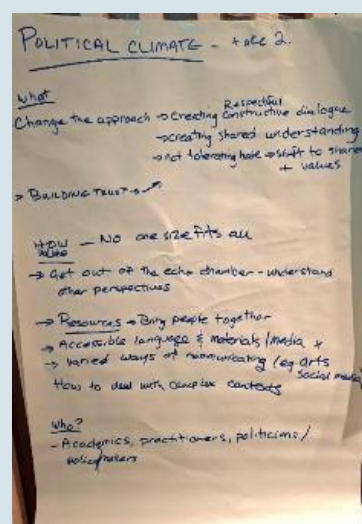 POLITICAL CLIMATE - take 2.
What
Respectful
Change the approach → creating constructive dialogue
→ creating shared understanding
→ not tolerating hate → shift to shared
+ values
> BUILDING TRUST →
HOW - No one size fits all
→ Get out of the echo chamber - understand
other perspectives
→ Resources → Bring people together
→ Accessible language & materials/media x
→ varied ways of communicating (eg. arts
social media)
How to deal with complex contexts
Who?
- Academics, practitioners, politicians/
policy makers